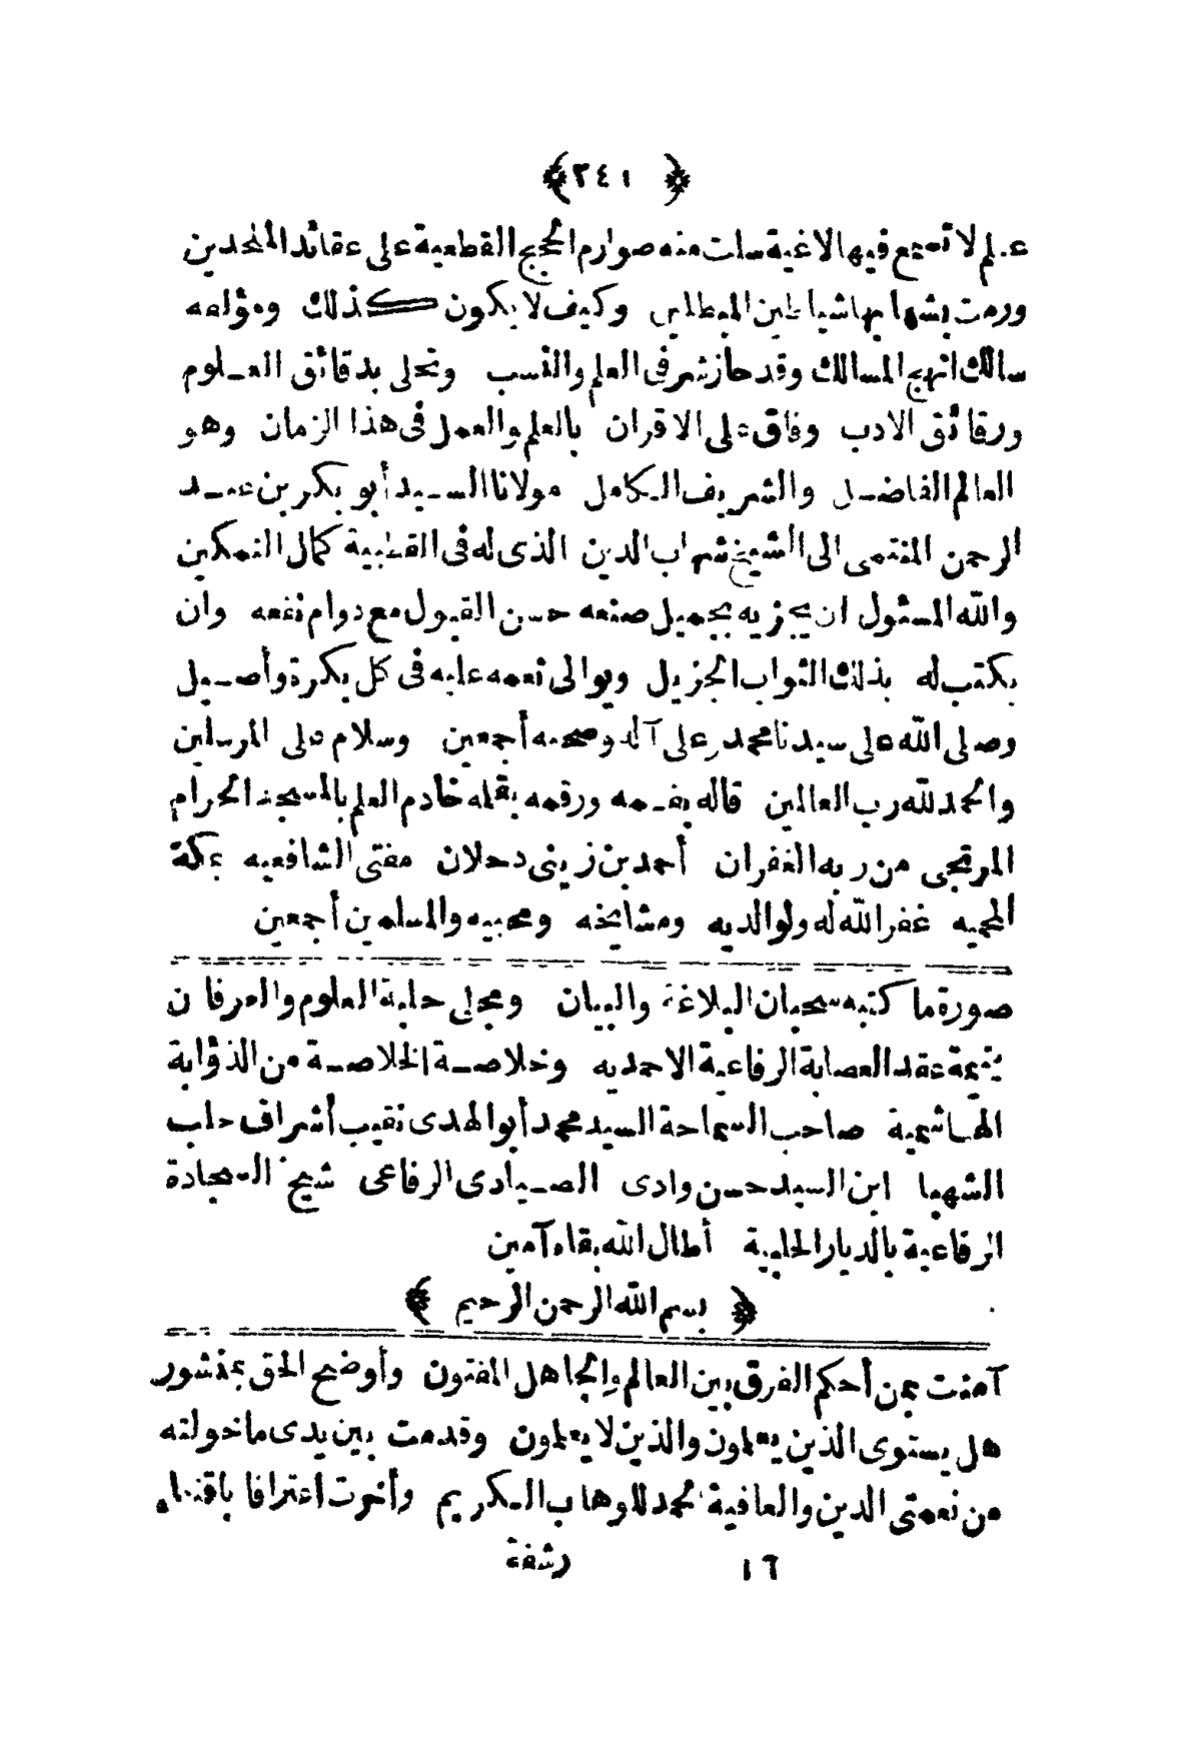 ﴿ ٢٤١ ﴾
علم لا تسمع فيها لاغية سلت منه صوارم الحجج القطعية على عقائد الملحدين
ورمت بشهابها شياطين المبطلين وكيف لا يكون كذلك ومؤلفه
سالك انهج المسالك وقد حاز شرفى العلم والنسب وتحلى بدقائق العلوم
ورقائق الادب وفاق على الاقران بالعلم والعمل فى هذا الزمان وهو
العالم الفاضل والشريف الكامل مولانا السيد أبو بكر بن عبد
الرحمن المنتمى الى الشيخ شهاب الدين الذى له فى القطبية كمال التمكين
والله المسئول ان يجزيه بجميل صنعه حسن القبول مع دوام نفعه وان
يكتب له بذلك الثواب الجزيل ويوالى نعمه عليه فى كل بكرة وأصيل
وصلى الله على سيدنا محمد وعلى آله وصحبه أجمعين وسلام على المرسلين
والحمد لله رب العالمين قاله بفمه ورقمه بقلمه خادم العلم بالمسجد الحرام
المرتجى من ربه الغفران أحمد بن زينى دحلان مفتى الشافعيه بمكة
المحميه غفر الله له ولوالديه ومشايخه ومحبيه والمسلمين أجمعين
صورة ما كتبه سحبان البلاغة والبيان ومجلى حلبة العلوم والعرفان
يتيمة عقد العصابة الرفاعية الاحمديه وخلاصة الخلاصة من الذؤابة
الهاشمية صاحب السماحة السيد محمد أبو الهدى نقيب أشراف حلب
الشهبا ابن السيد حسن وادى الصيادى الرفاعى شيخ السجادة
الرفاعية بالديار الحلبية أطال الله بقاه آمين
﴿ بسم الله الرحمن الرحيم ﴾
آمنت بمن أحكم الفرق بين العالم والجاهل المفتون وأوضح الحق بمنشور
هل يستوى الذين يعلمون والذين لا يعلمون وقدمت بين يدى ما خولته
من نعمتى الدين والعافية محمد للوهاب الكريم وأخرت اعترافا باقتناء
١٦ رشفة